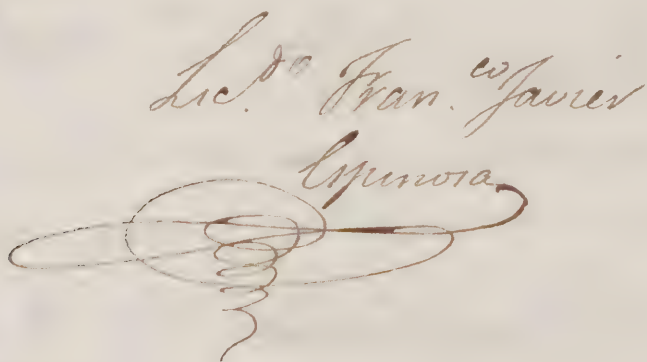 Lic.do Fran.co Javier
Espinosa